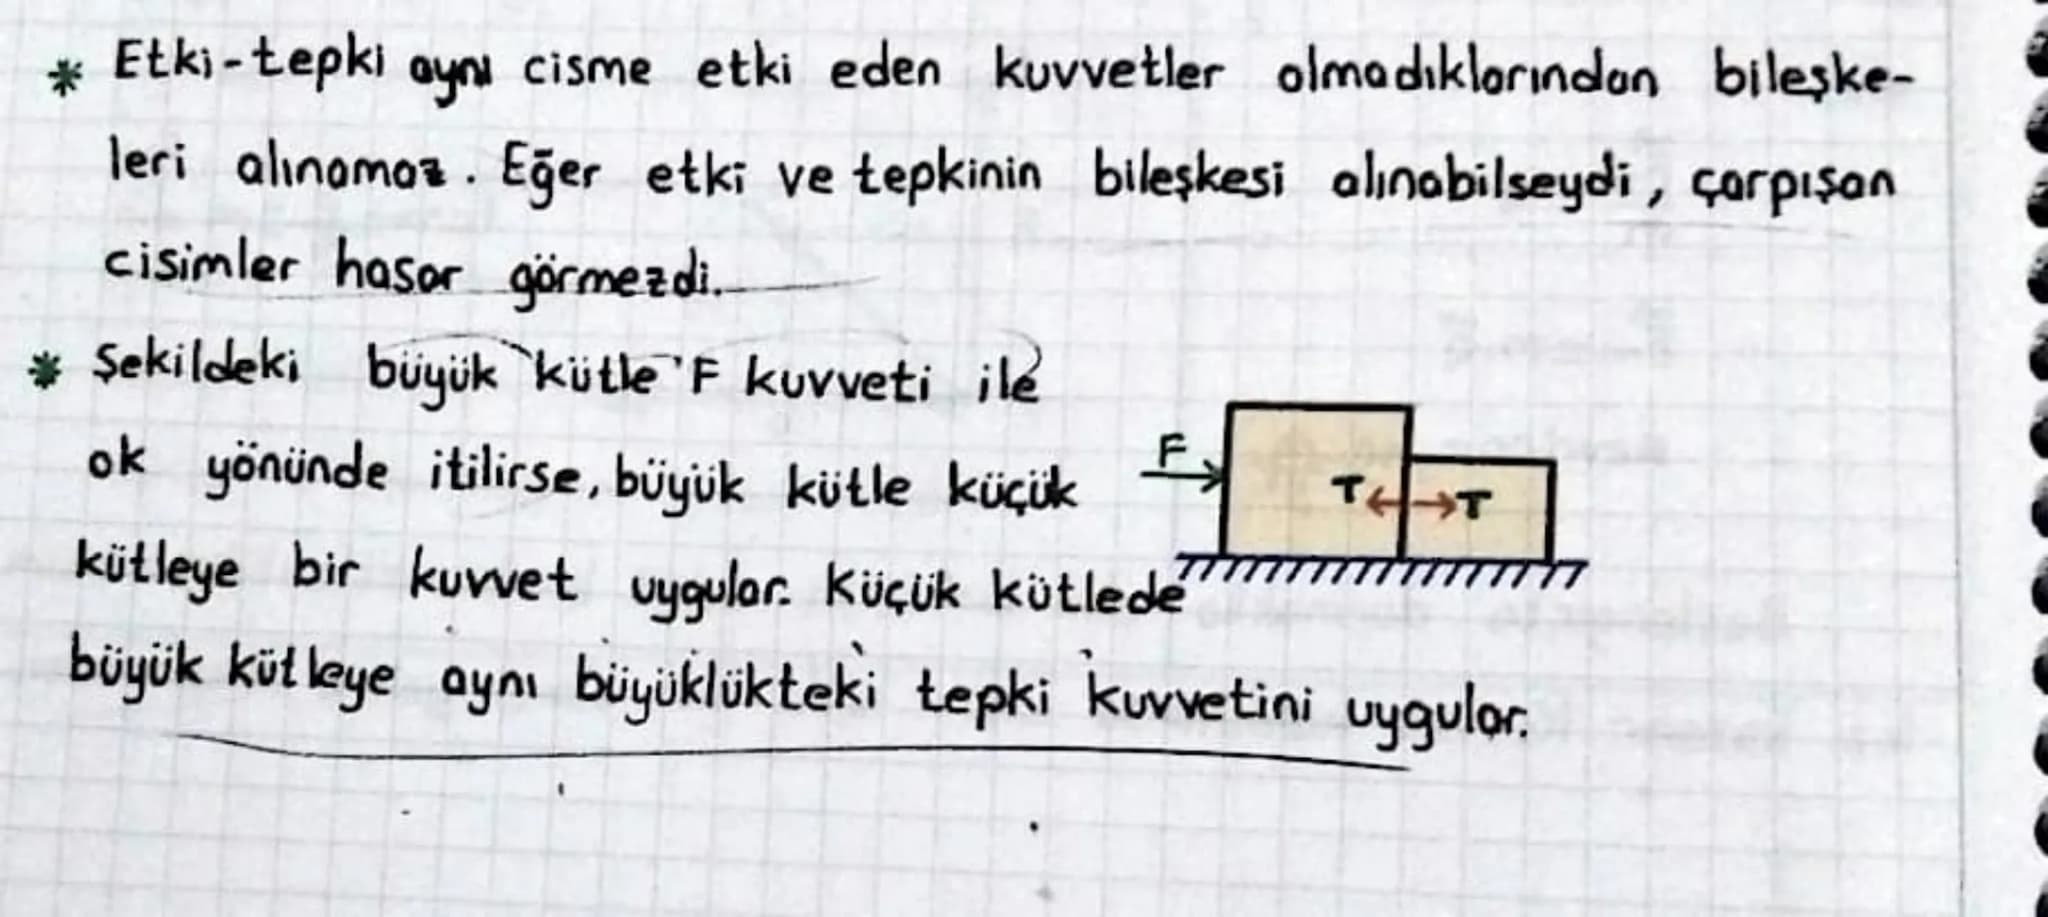 * Etki-tepki aynı cisme etki eden kuvvetler olmadıklarından bileşke-
leri alınamaz. Eğer etki ve tepkinin bileşkesi alınabilseydi, çarpışan
cisimler hasar görmezdi.
* Şekildeki büyük kütle F kuvveti ile
ok yönünde itilirse, büyük kütle küçük
kütleye bir kuvvet uygular. Küçük kütlede
büyük kütleye aynı büyüklükteki tepki kuvvetini uygular.
F
T T